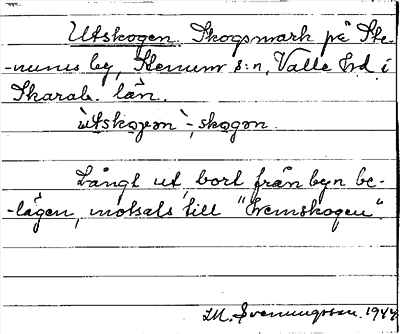 Utskogen. Skogsmark på Ste-
-nums by, Stenum s:n, Valle hrd i
Skarab. län.
ùtskoɡən `-, skoɡən.
Långt ut, bort från byn be-
-lägen, motsats till "Hemskogen".
M. Svenningsson. 1944